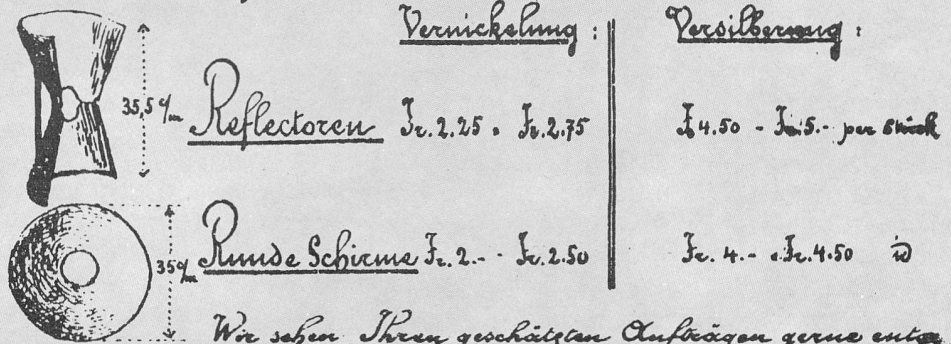 Vernickelung : Versilberung :
35,5 c/m Reflectoren Fr. 2.25 - Fr. 2.75 Fr. 4.50 - Fr. 5.- per Stück
35 c/m Runde Schirme Fr. 2.- - Fr. 2.50 Fr. 4.- - Fr. 4.50 id
Wir sehen Ihren geschätzten Aufträgen gerne